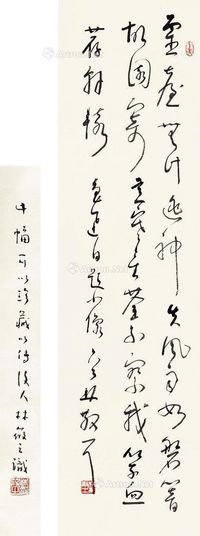 靈臺無計逃神矢風雨如磐闇
故園寄意寒星荃不察我以我血
薦軒轅 魯迅自題小像 林散耳
此幅可以珍藏以傳後人林筱之識